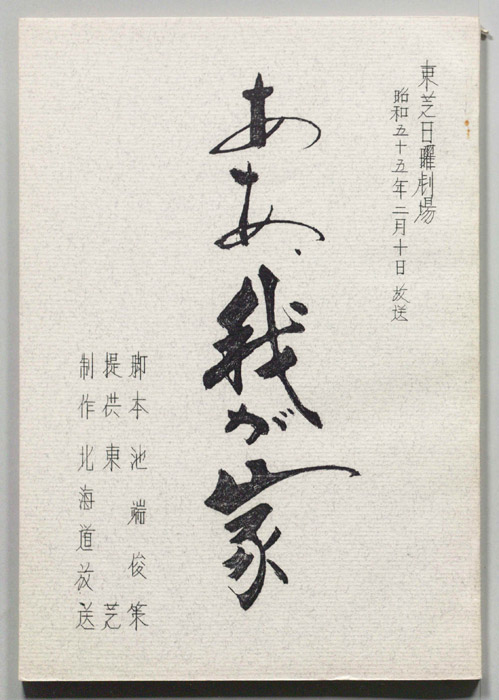 東芝日曜劇場
昭和五十五年二月十日 放送
ああ、我が家
脚本 池端俊策
提供 東芝
制作 北海道放送